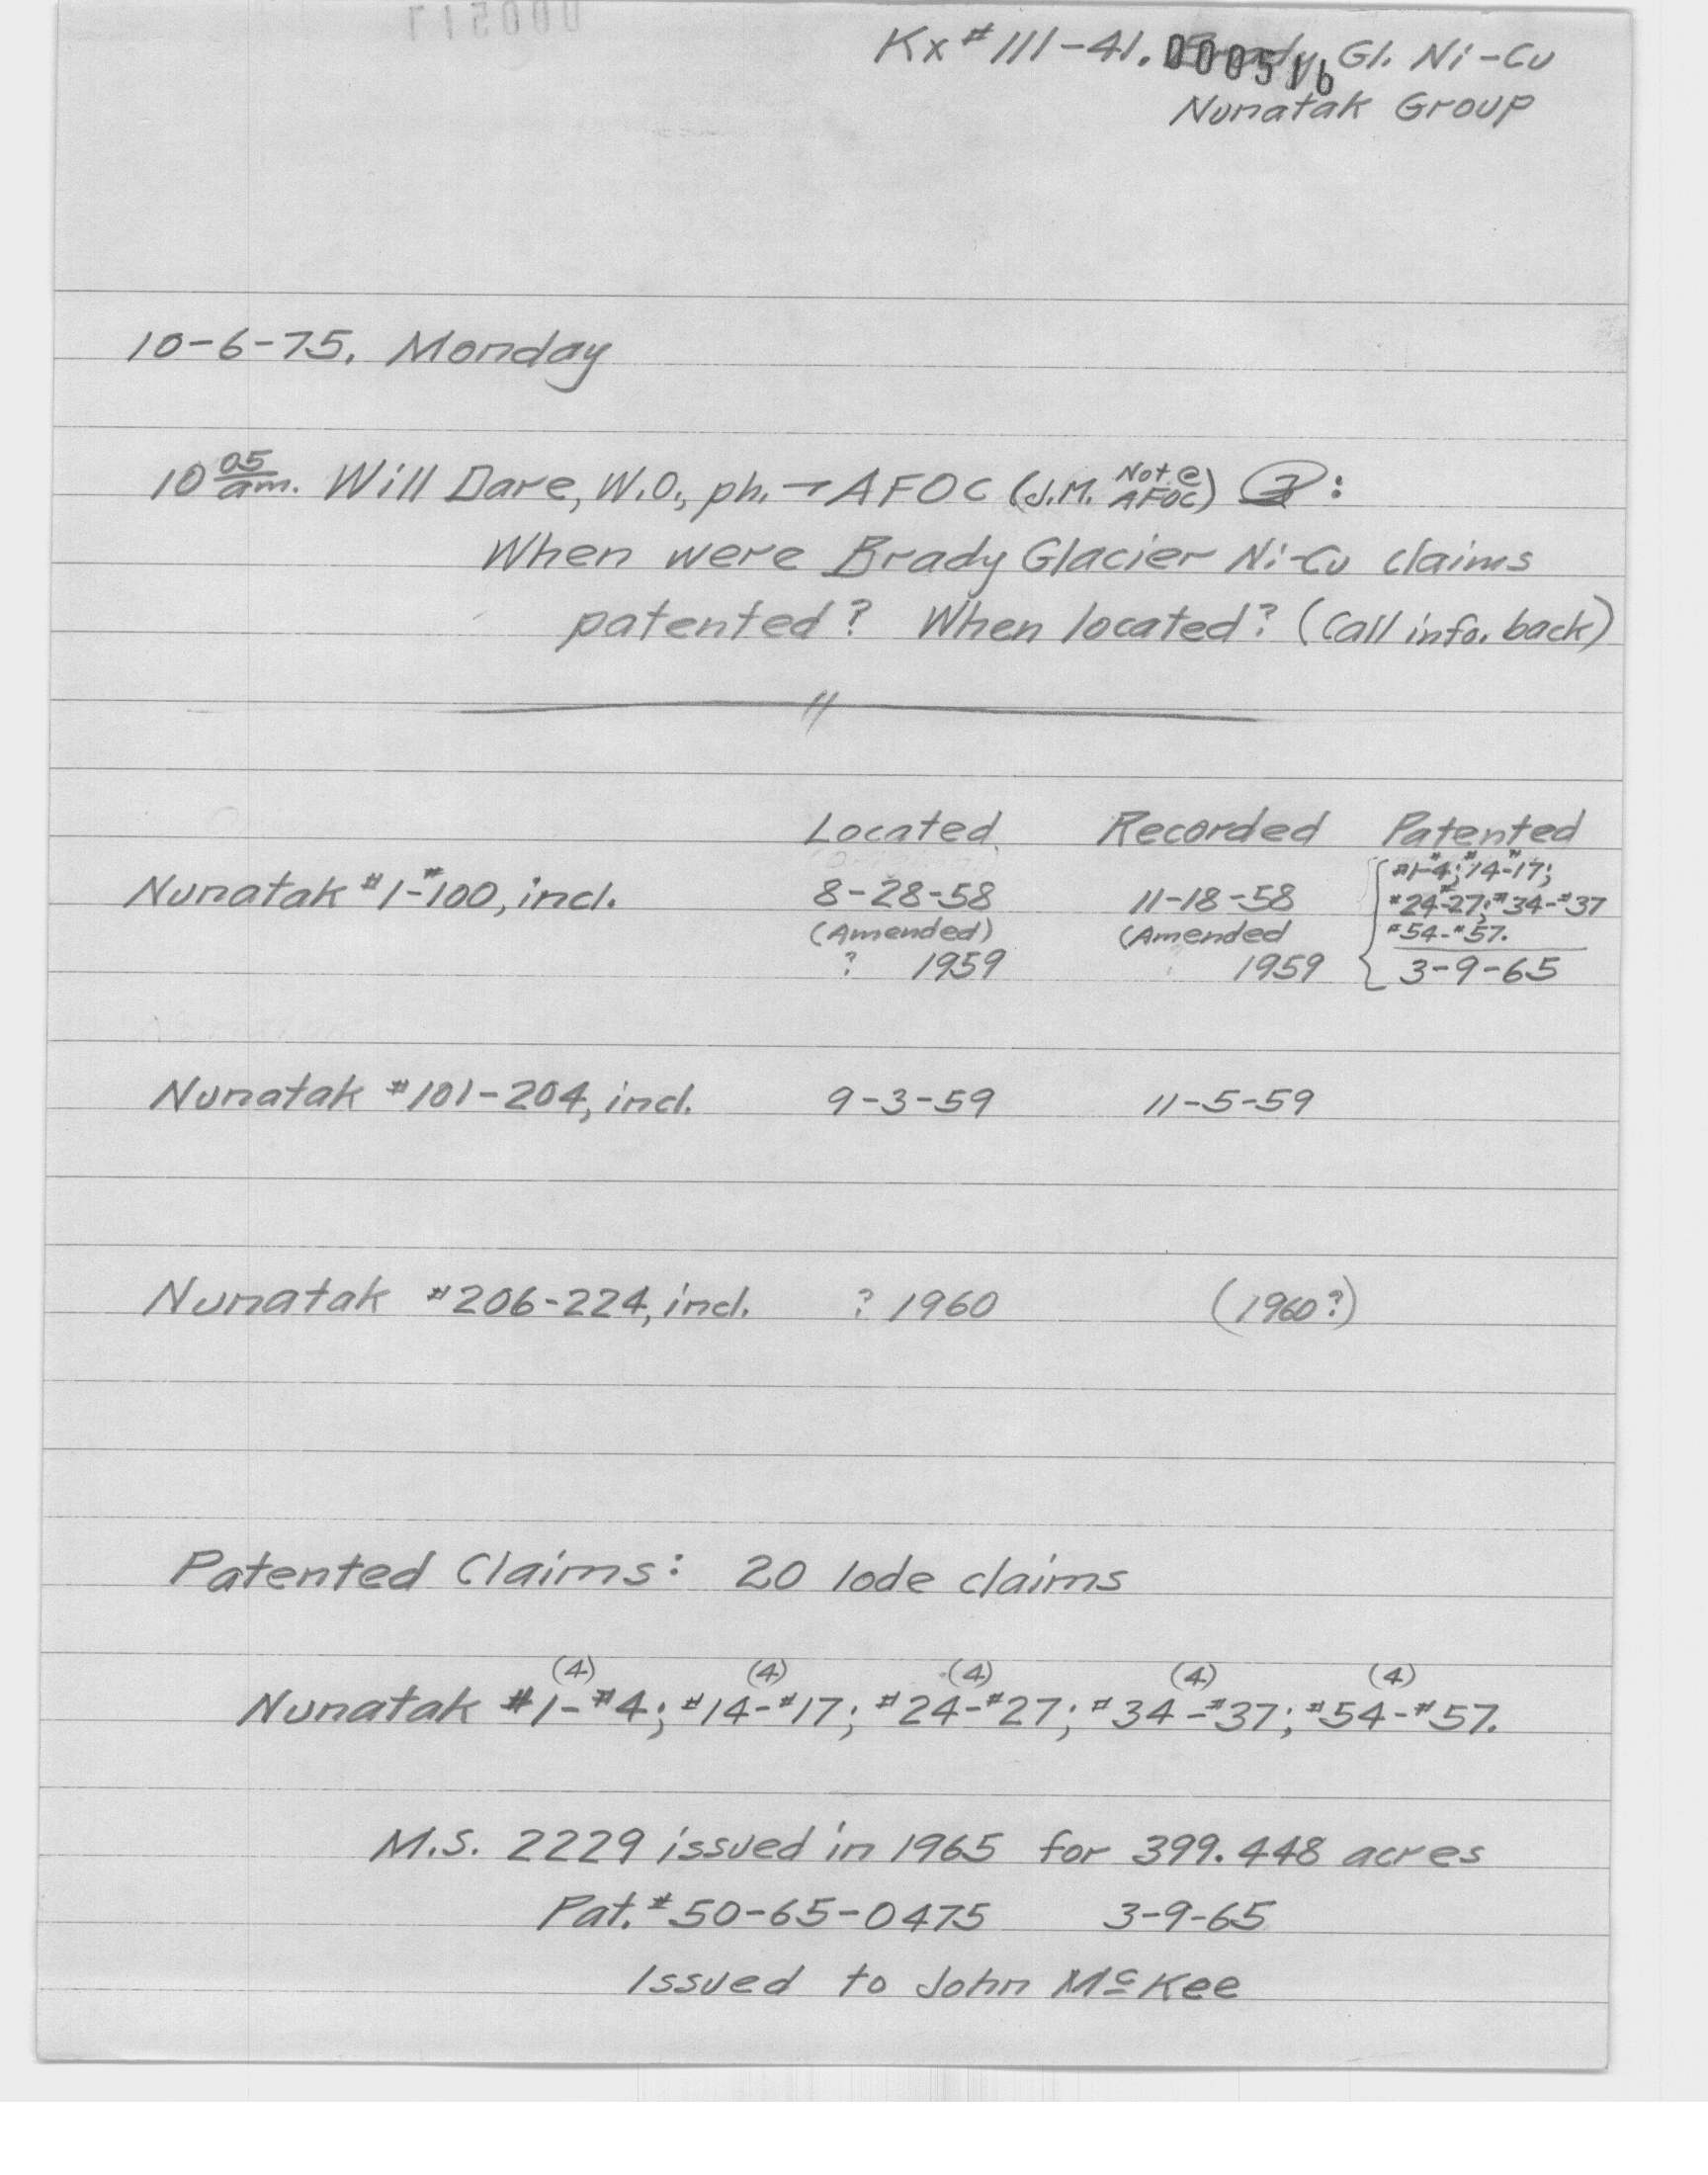 Kx # 111-41. Brady Gl. Ni-Cu
000516
Nunatak Group
10-6-75. Monday
10 05 am. Will Dare, W.O., ph. → AFOC (J.M. Not @ AFOC) :
When were Brady Glacier Ni-Cu claims
patented? When located? (Call info. back)
Located Recorded Patented
Nunatak #1-#100, incl. 8-28-58 11-18-58 #1-#4; #14-#17;
#24-#27; #34-#37
(Amended) (Amended #54-#57.
? 1959 1959 3-9-65
Nunatak #101-204, incl. 9-3-59 11-5-59
Nunatak #206-224, incl. ? 1960 (1960?)
Patented Claims: 20 lode claims
(4) (4) (4) (4) (4)
Nunatak #1-#4; #14-#17; #24-#27; #34-#37; #54-#57.
M.S. 2229 issued in 1965 for 399.448 acres
Pat. #50-65-0475 3-9-65
Issued to John McKee